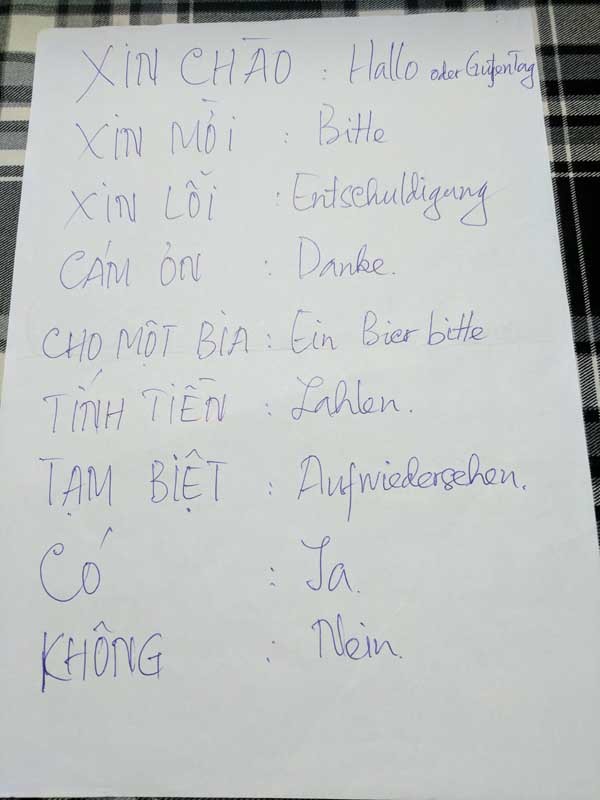 XIN CHÀO : Hallo oder Guten Tag
XIN MỜI : Bitte
XIN LỖI : Entschuldigung
CÁM ƠN : Danke.
CHO MỘT BIA : Ein Bier bitte
TÍNH TIỀN : Zahlen.
TẠM BIỆT : Aufwiedersehen.
CÓ : Ja.
KHÔNG : Nein.